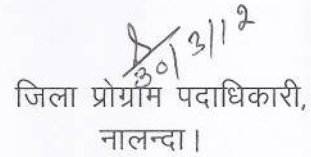 30/3/12
जिला प्रोग्राम पदाधिकारी,
नालन्दा।